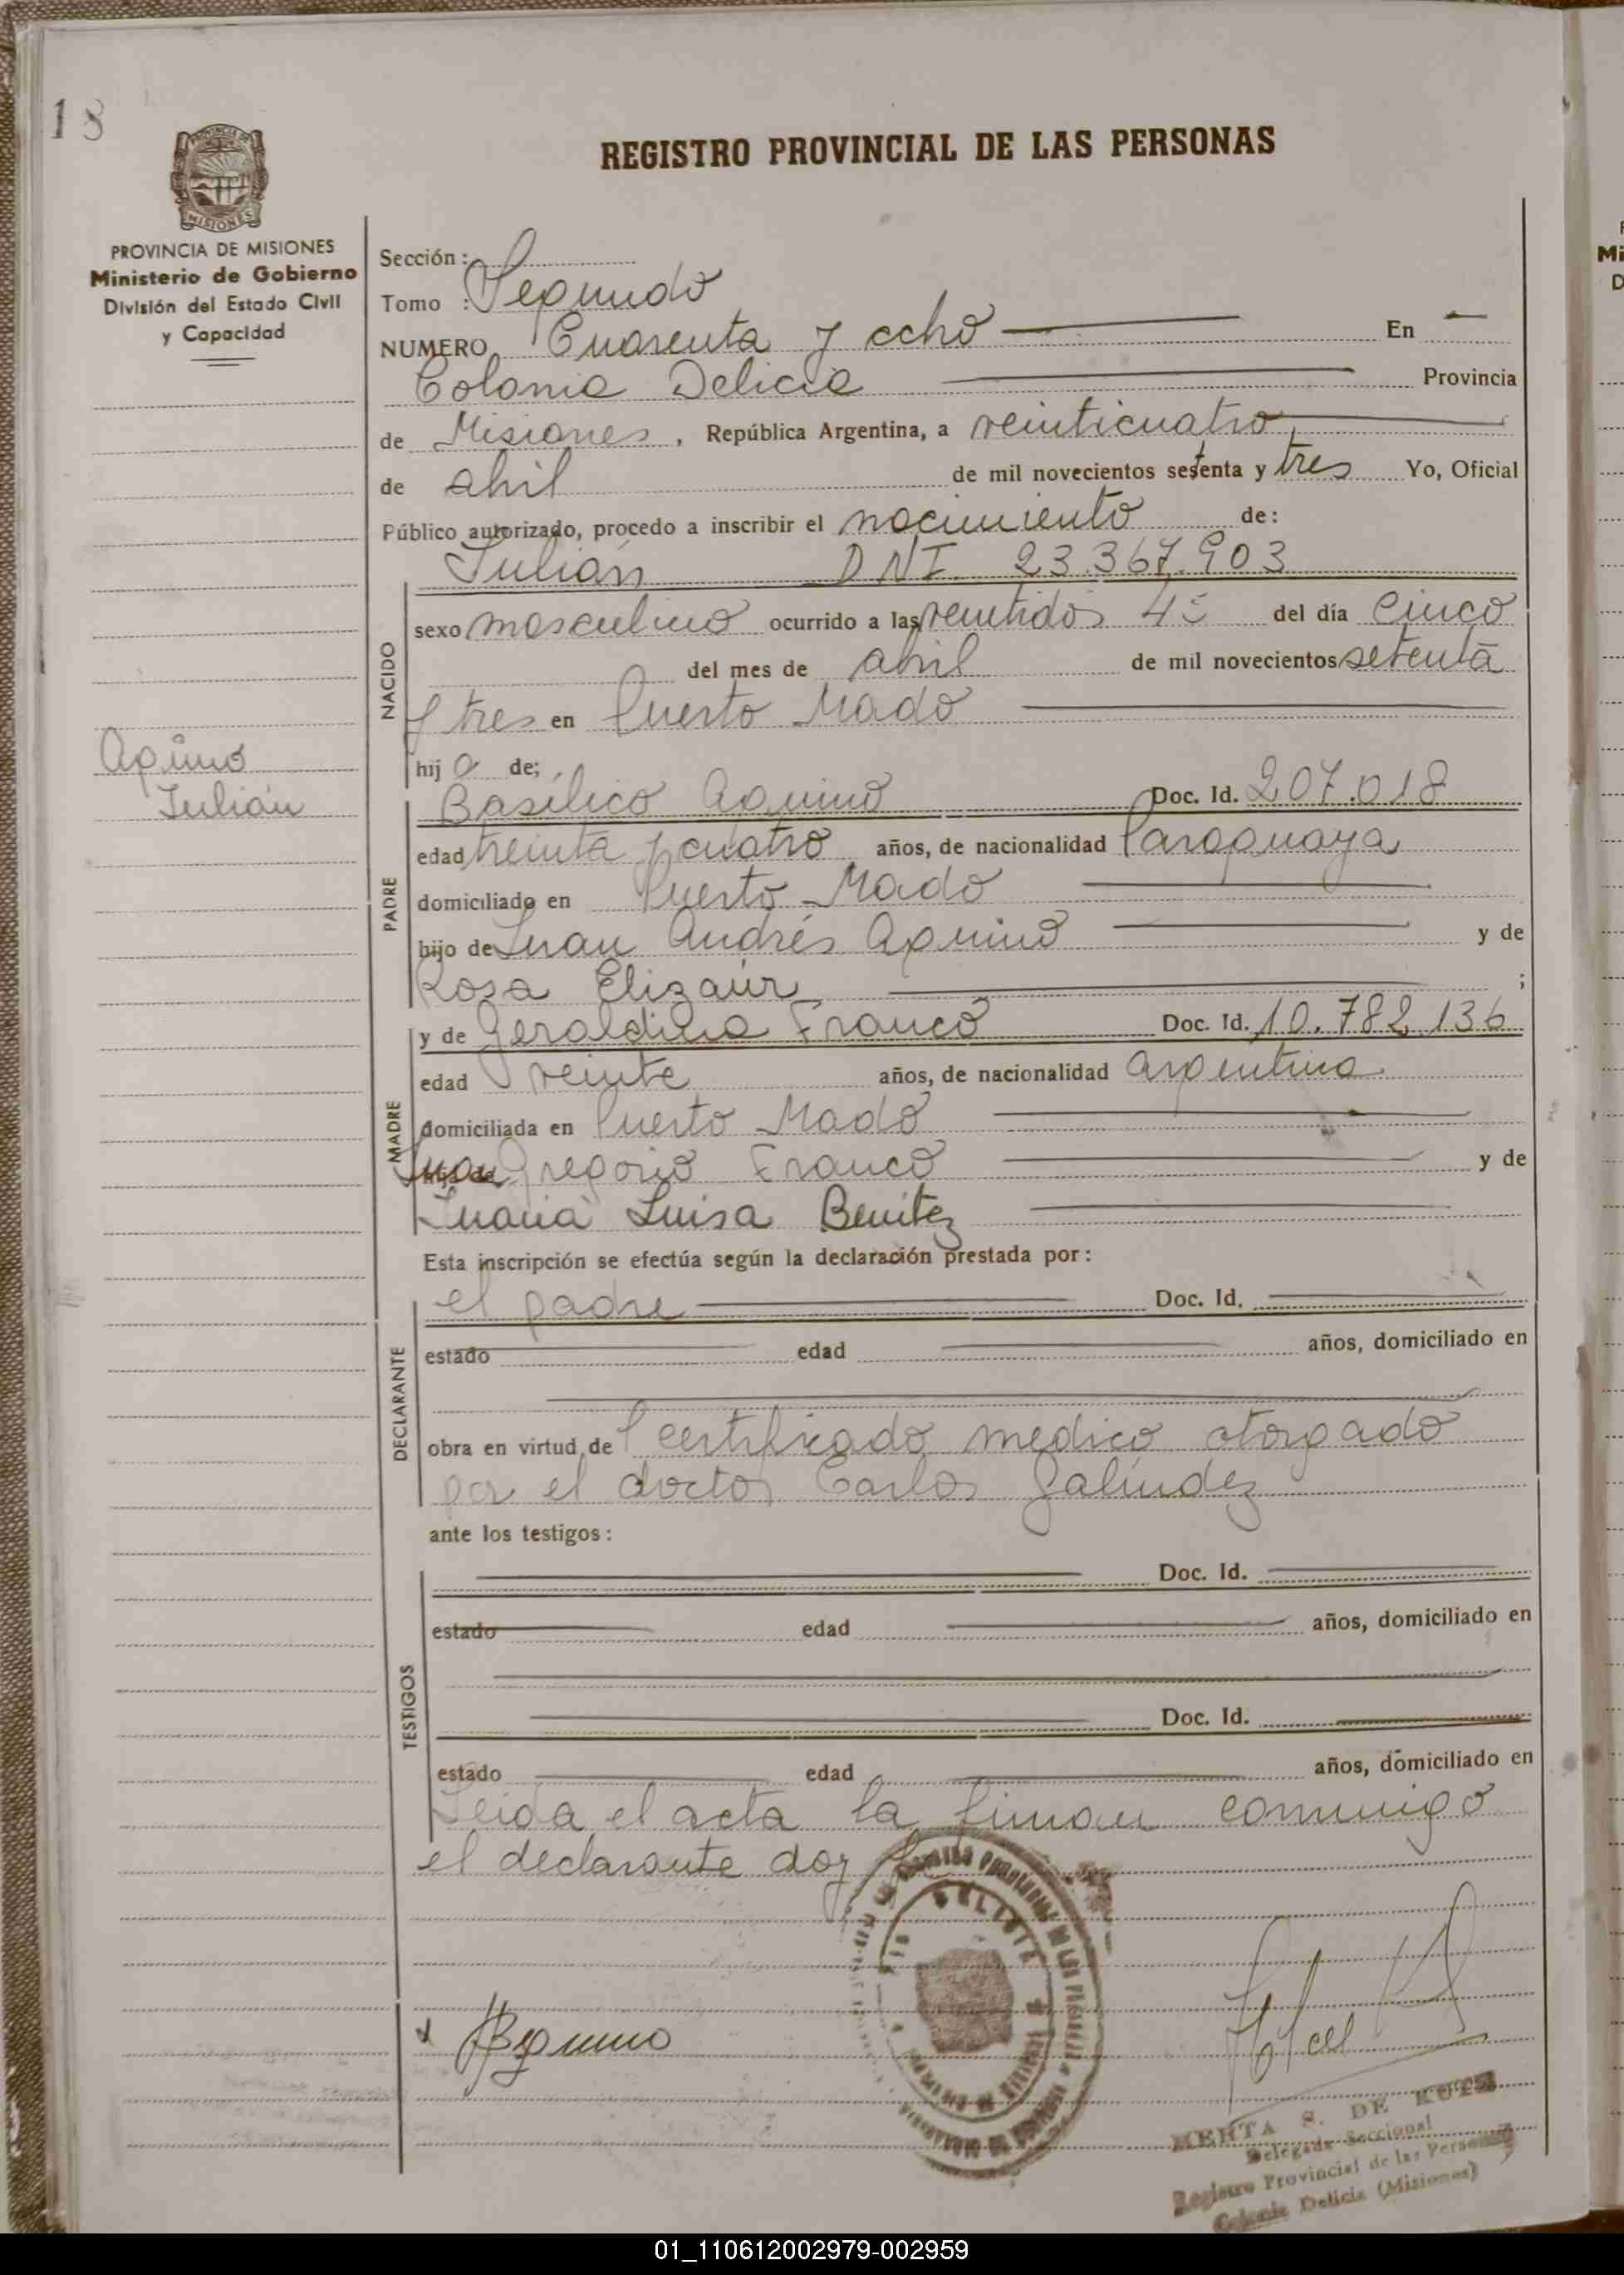 18
REGISTRO PROVINCIAL DE LAS PERSONAS
PROVINCIA DE MISIONES
Ministerio de Gobierno
División del Estado Civil
y Capacidad
Sección:
Tomo : Segundo
NUMERO Cuarenta y ocho En
Colonia Delicia Provincia
de Misiones, República Argentina, a veinticuatro
de abril de mil novecientos setenta y tres Yo, Oficial
Público autorizado, procedo a inscribir el nacimiento de:
Julián DNI. 23.367.903
NACIDO
sexo masculino ocurrido a las veintidós del día cinco
del mes de abril de mil novecientos setenta
y tres en Puerto Mado
hijo de;
Aquino
Julián
PADRE
Basilico Aquino Doc. Id. 207.018
edad treinta y cuatro años, de nacionalidad Paraguaya
domiciliado en Puerto Mado
hijo de Juan Andrés Aquino y de
Rosa Elizaur ;
MADRE
y de Geraldina Franco Doc. Id. 10.782.136
edad veinte años, de nacionalidad Argentina
domiciliada en Puerto Mado
Juan Gregorio Franco y de
Luisa Benitez
Esta inscripción se efectúa según la declaración prestada por:
DECLARANTE
el padre Doc. Id.
estado edad años, domiciliado en
obra en virtud de certificado medico otorgado
por el doctor Carlos Galíndez
ante los testigos:
TESTIGOS
Doc. Id.
estado edad años, domiciliado en
Doc. Id.
estado edad años, domiciliado en
Leida el acta la firman conmigo
el declarante doy
BAquino
MERTA S. DE
Delegada Seccional
Registro Provincial de las Personas
Colonia Delicia (Misiones)
01_110612002979-002959